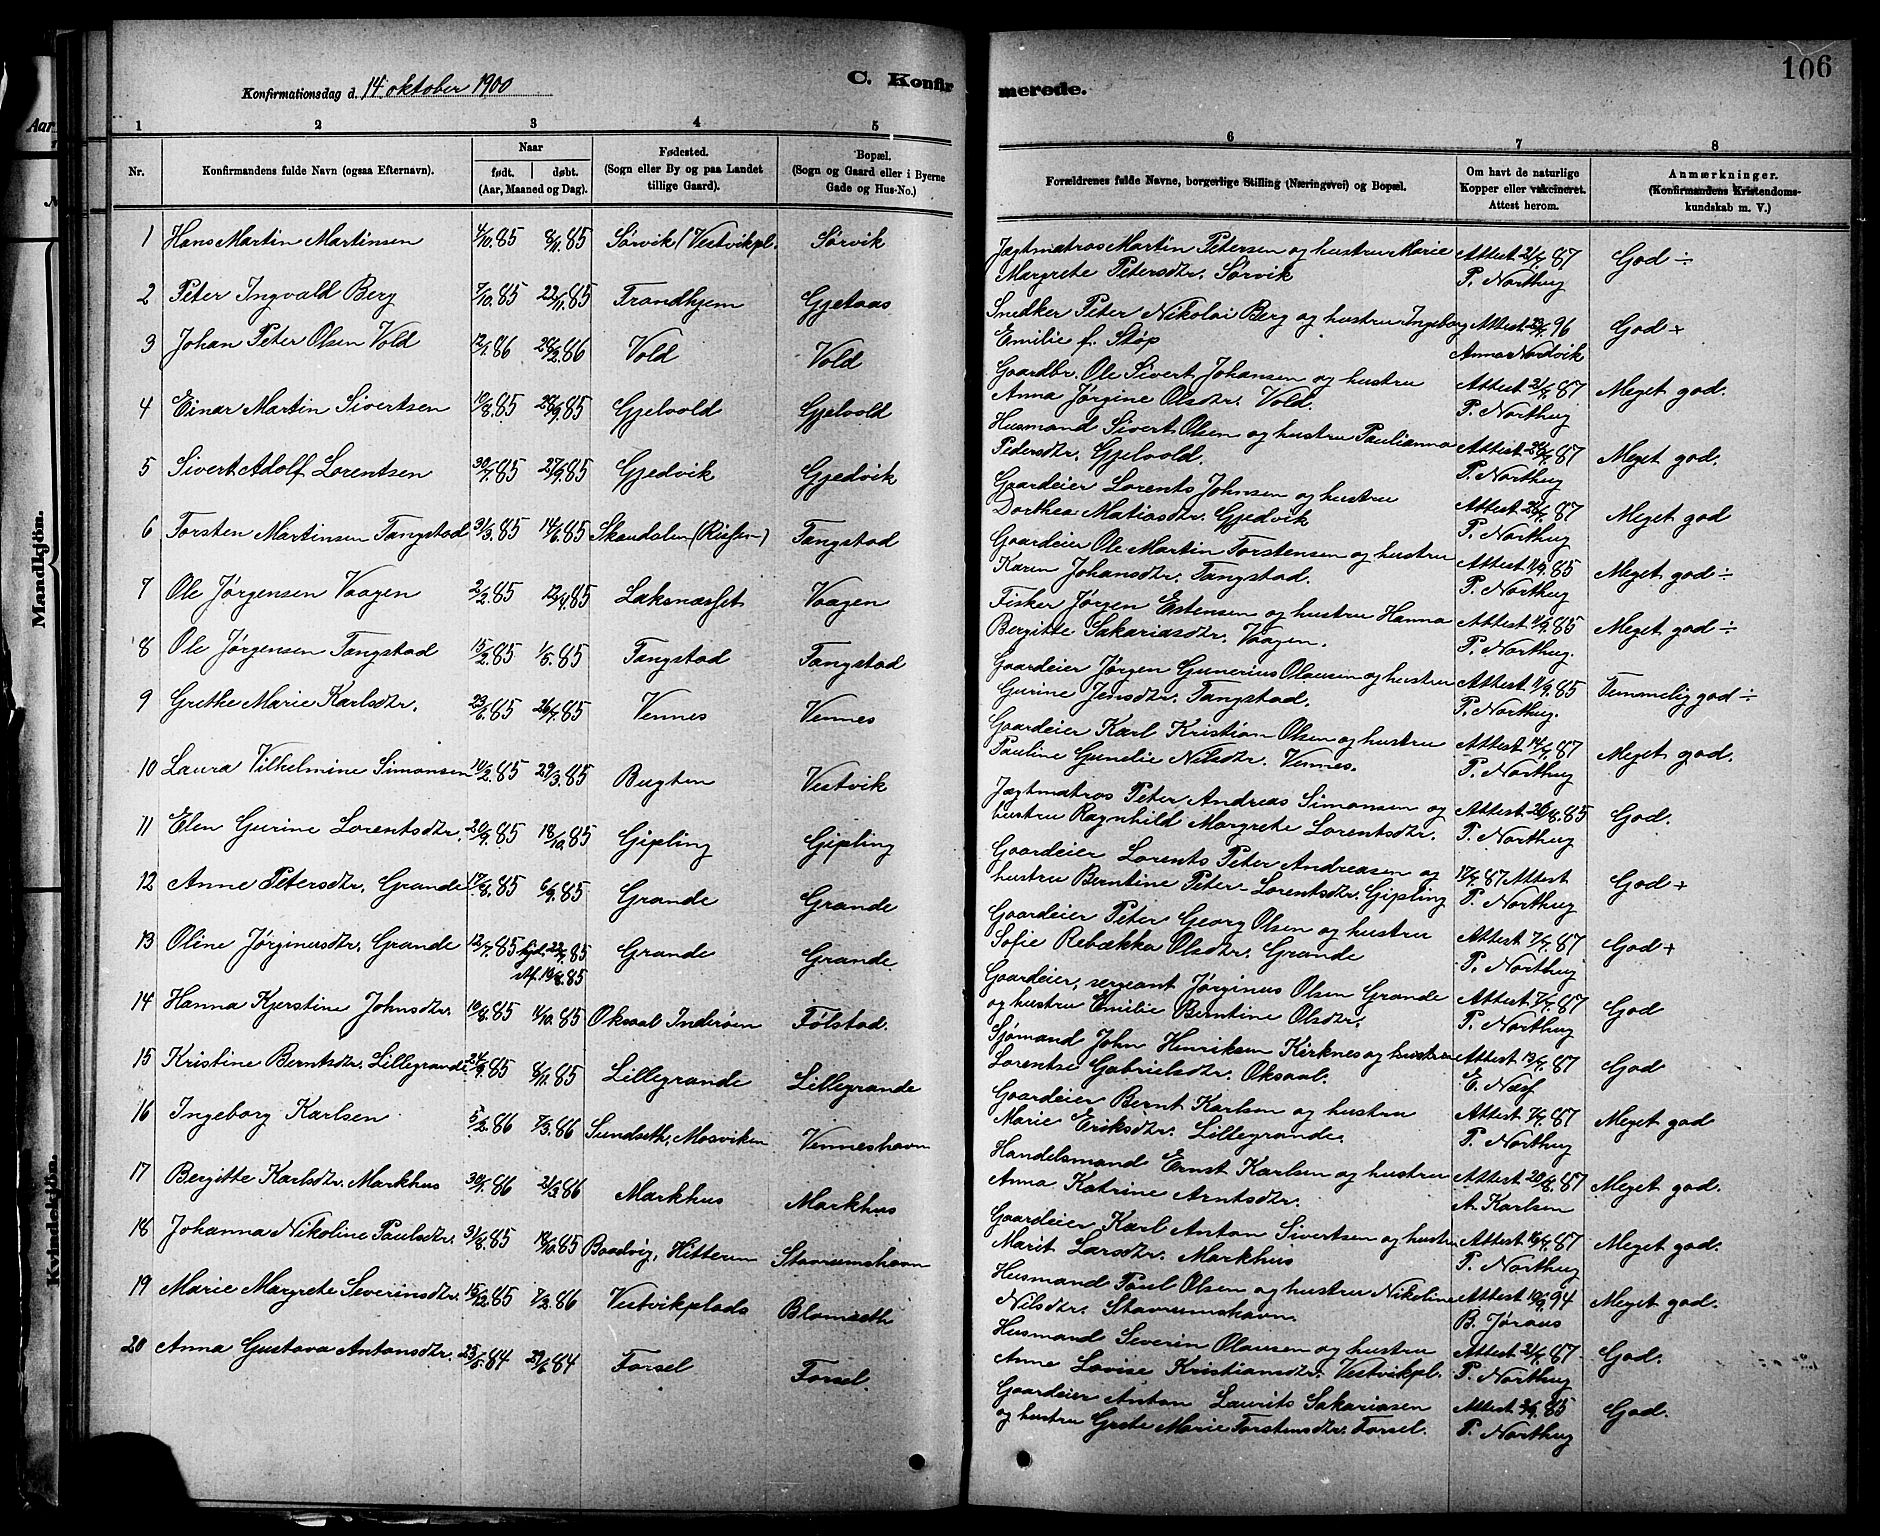 106
Konfirmationsdag d. 14 oktober 1900
C. Konfirmerede.
Aar
Mandkjön.
Kvindekjön.
1 2 3 4 5 6 7 8
Nr.
Konfirmandens fulde Navn (ogsaa Efternavn).
Naar
født. døbt.
(Aar, Maaned og Dag).
Fødested.
(Sogn eller By og paa Landet
tillige Gaard).
Bopæl.
(Sogn og Gaard eller i Byerne
Gade og Hus-No.)
Forældrenes fulde Navne, borgerlige Stilling (Næringsvei) og Bopæl.
Om havt de naturlige
Kopper eller vakcineret.
Attest herom.
Anmærkninger.
(Konfirmandens Kristendoms-
kundskab m. V.)
1 Hans Martin Martinsen 4/10.85 8/11.85 Sørvik (Vestvikpl. Sørvik
Jægtmatros Martin Petersen og hustru Marie Attest 21/7.87 God ÷
Margrete Petersdtr. Sørvik P. Northug
2 Peter Ingvald Berg 7/10.85 22/11.85 Trondhjem Gjetaas
Snedker Peter Nikolai Berg og hustru Ingeborg Attest 96 God +
Emilie f. Støp Anna Nordvik
3 Johan Peter Olsen Vold 12/1.86 28/2.86 Vold Vold
Gaardbr. Ole Sivert Johansen og hustru Attest 21/7.87 Meget god.
Anna Jørgine Olsdtr. Vold. P. Northug
4 Einar Martin Sivertsen 10/8.85 20/9.85 Gjelvold Gjelvold
Husmand Sivert Olsen og hustru Paulianna Attest 87 Meget god.
Pedersdtr. Gjelvold. P. Northug
5 Sivert Adolf Lorentsen 30/7.85 27/9.85 Gjedvik Gjedvik
Gaardeier Lorents Johnsen og hustru Attest 87 Meget god
Dorthea Matiasdtr. Gjedvik P. Northug
6 Torsten Martinsen Tangstad 31/3.85 14/6.85 Skaudalen (Rissen) Tangstad
Gaardeier Ole Martin Torstensen og hustru Attest 1/9.85 Meget god ÷
Karen Johansdtr. Tangstad. P. Northug
7 Ole Jørgensen Vaagen 2/2.85 12/4.85 Laksnæsset Vaagen
Fisker Jørgen Estensen og hustru Hanna Attest 1/9.85 Meget god ÷
Bergitte Sakariasdtr. Vaagen. P. Northug.
8 Ole Jørgensen Tangstad 15/2.85 1/5.85 Tangstad Tangstad
Gaardeier Jørgen Gunerius Olausen og hustru Attest 1/9.85 Temmelig god ÷
Gurine Jensdtr. Tangstad. P. Northug.
9 Grethe Marie Karlsdtr. 23/6.85 26/7.85 Vennes Vennes
Gaardeier Karl Kristian Olsen og hustru Attest 14/7.87 Meget god.
Pauline Gunelie Nilsdtr. Vennes. P. Northug
10 Laura Vilhelmine Simonsen 10/2.85 29/3.85 Bugten Vestvik
Jægtmatros Peter Andreas Simonsen og Attest 26/8.85 God.
hustru Ragnhild Margrete Lorentsdtr. P. Northug
11 Elen Gurine Lorentsdtr. 20/9.85 18/10.85 Gipling Gipling
Gaardeier Lorents Peter Andreasen og 17/7.87 Attest God +
hustru Berntine Peter. Lorentsdtr. Gipling P. Northug
12 Anne Petersdtr. Grande 17/8.85 6/9.85 Grande Grande
Gaardeier Peter Georg Olsen og hustru Attest 7/7.87 God +
Sofie Rebækka Olsdtr. Grande P. Northug
13 Oline Jørginusdtr. Grande 12/7.85 hjd. 22/7.85 Grande Grande.
st.f. 16/8.85
Gaardeier, sergeant Jørginus Olsen Grande Attest 7/7.87 God
og hustru Emilie Berntine Olsdtr. P. Northug
14 Hanna Kjerstine Johnsdtr. 10/8.85 11/10.85 Oksaal Inderøen Følstad.
Sjømand John Henriksen Kirknes og hustru Attest 19/7.87 God
Lorentse Gabrielsdtr. Oksaal. E. Næss
15 Kristine Berntsdtr. Lillegrande 24/9.85 8/11.85 Lillegrande Lillegrande
Gaardeier Bernt Karlsen og hustru Attest 7/7.87 Meget god
Marie Eriksdtr. Lillegrande. P. Northug
16 Ingeborg Karlsen 5/2.86 7/3.86 Sundseth, Mosviken Venneshavn
Handelsmand Ernst Karlsen og hustru Attest 20/8.87 Meget god.
Anna Katrine Arntsdtr. A. Karlsen
17 Bergitte Karlsdtr. Markhus 30/1.86 21/3.86 Markhus Markhus
Gaardeier Karl Anton Sivertsen og hustru Attest 16/7.87 Meget god.
Marit Larsdtr. Markhus P. Northug
18 Johanna Nikoline Paulsdtr. 31/8.85 18/10.85 Baadvig, Hitteren Stavrumshavn
Husmand Paul Olsen og hustru Nikoline Attest 10/9.94 Meget god.
Nilsdtr. Stavrumshavn. B. Jøraas
19 Marie Margrete Severinsdtr. 15/12.85 7/2.86 Vestvikplads Blomseth
Husmand Severin Olausen og hustru Attest 21/7.87 God.
Anna Lovise Kristiansdtr. Vestvikpl. P. Northug
20 Anna Gustava Antonsdtr. 23/5.84 29/6.84 Forsel Forsel.
Gaardeier Anton Laurits Sakariasen Attest 3/9.85 God.
og hustru Grete Marie Torstensdtr. Forsel. P. Northug